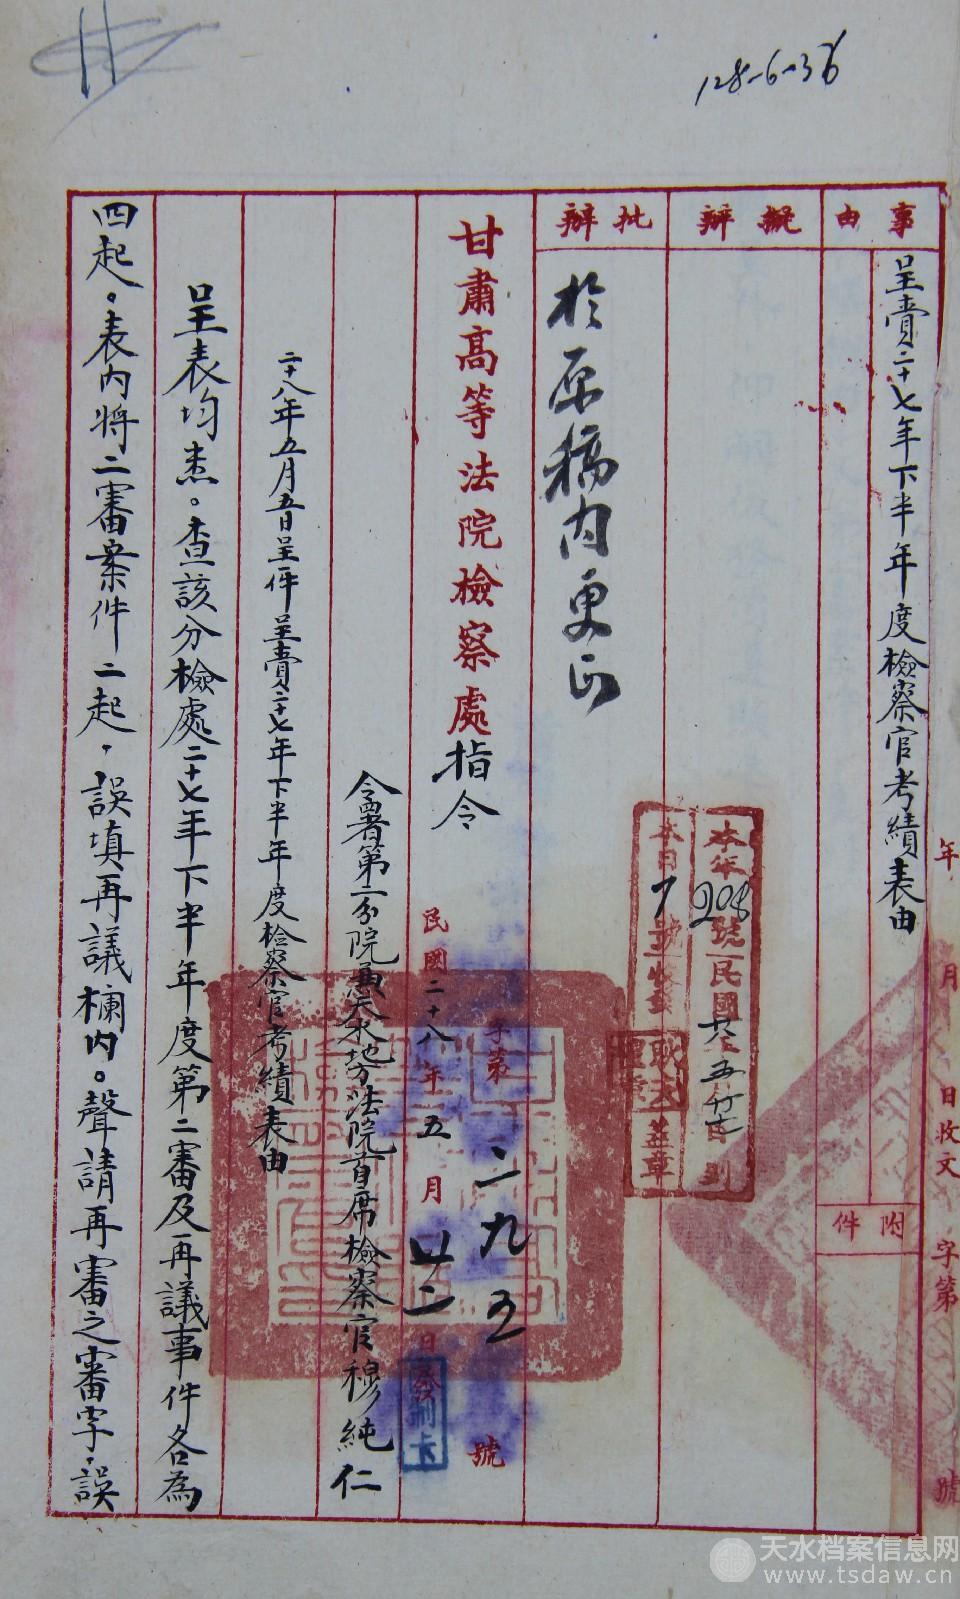 128-6-36
事由
呈賫二十七年下半年度檢察官考績表由
附件
擬辦
批辦
於原稿内更正
年 月 日收文 字第 號
本年208號民國廿八年五月廿七日到
本日7號收發
蓋章
甘肅高等法院檢察處指令
字第二九五號
民國二十八年五月廿二日發
令署第二分院兼天水地方法院首席檢察官穆純仁
二十八年五月五日呈一件呈賫二十七年下半年度檢察官考績表由
呈表均悉。查該分檢處二十七年下半年度第二審及再議事件各為
四起。表内將二審案件二起,誤填再議欄内。聲請再審之審字,誤
天水档案信息网
www.tsdaw.cn